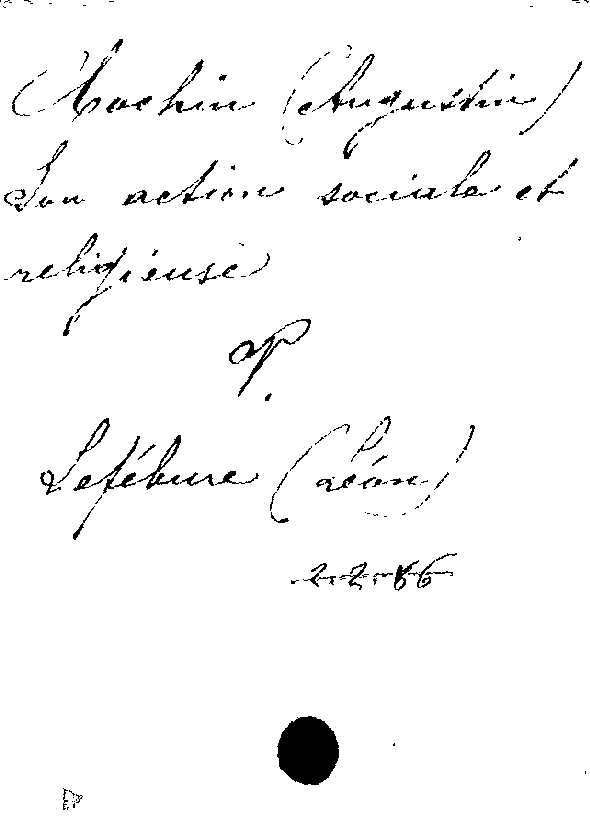 Cochin (Augustin)
Son action sociale et
religieuse
P.
Lefébure (Léon)